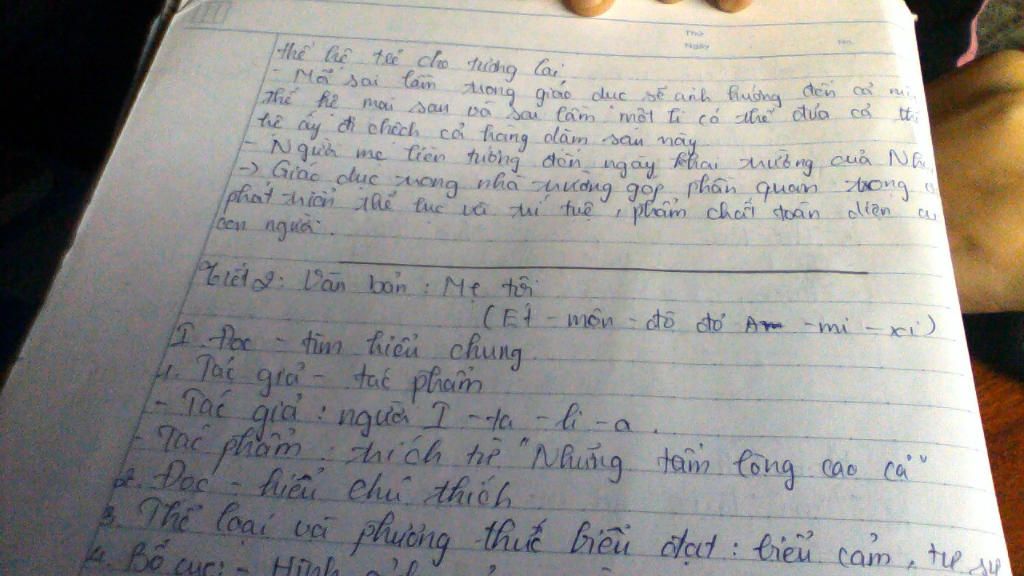 Thứ
Ngày No.
thế hệ trẻ cho tương lai.
- Mỗi sai lầm trong giáo dục sẽ ảnh hưởng đến cả
thế hệ mai sau và sai lầm một li có thể đưa cả thế
hệ ấy đi chệch cả hàng dặm sau này
- Người mẹ liên tưởng đến ngày khai trường của
-> Giáo dục trong nhà trường góp phần quan trọng
phát triển thể lực và trí tuệ, phẩm chất toàn diện
con người.
Tiết 2: Văn bản: Mẹ tôi
(Ét - môn - đô đơ A - mi - xi)
I. Đọc - tìm hiểu chung.
1. Tác giả - tác phẩm
- Tác giả: người I - ta - li - a.
- Tác phẩm: trích từ "Những tấm lòng cao cả"
2. Đọc - hiểu chú thích
3. Thể loại và phương thức biểu đạt: biểu cảm, tự sự
4. Bố cục: - Hình